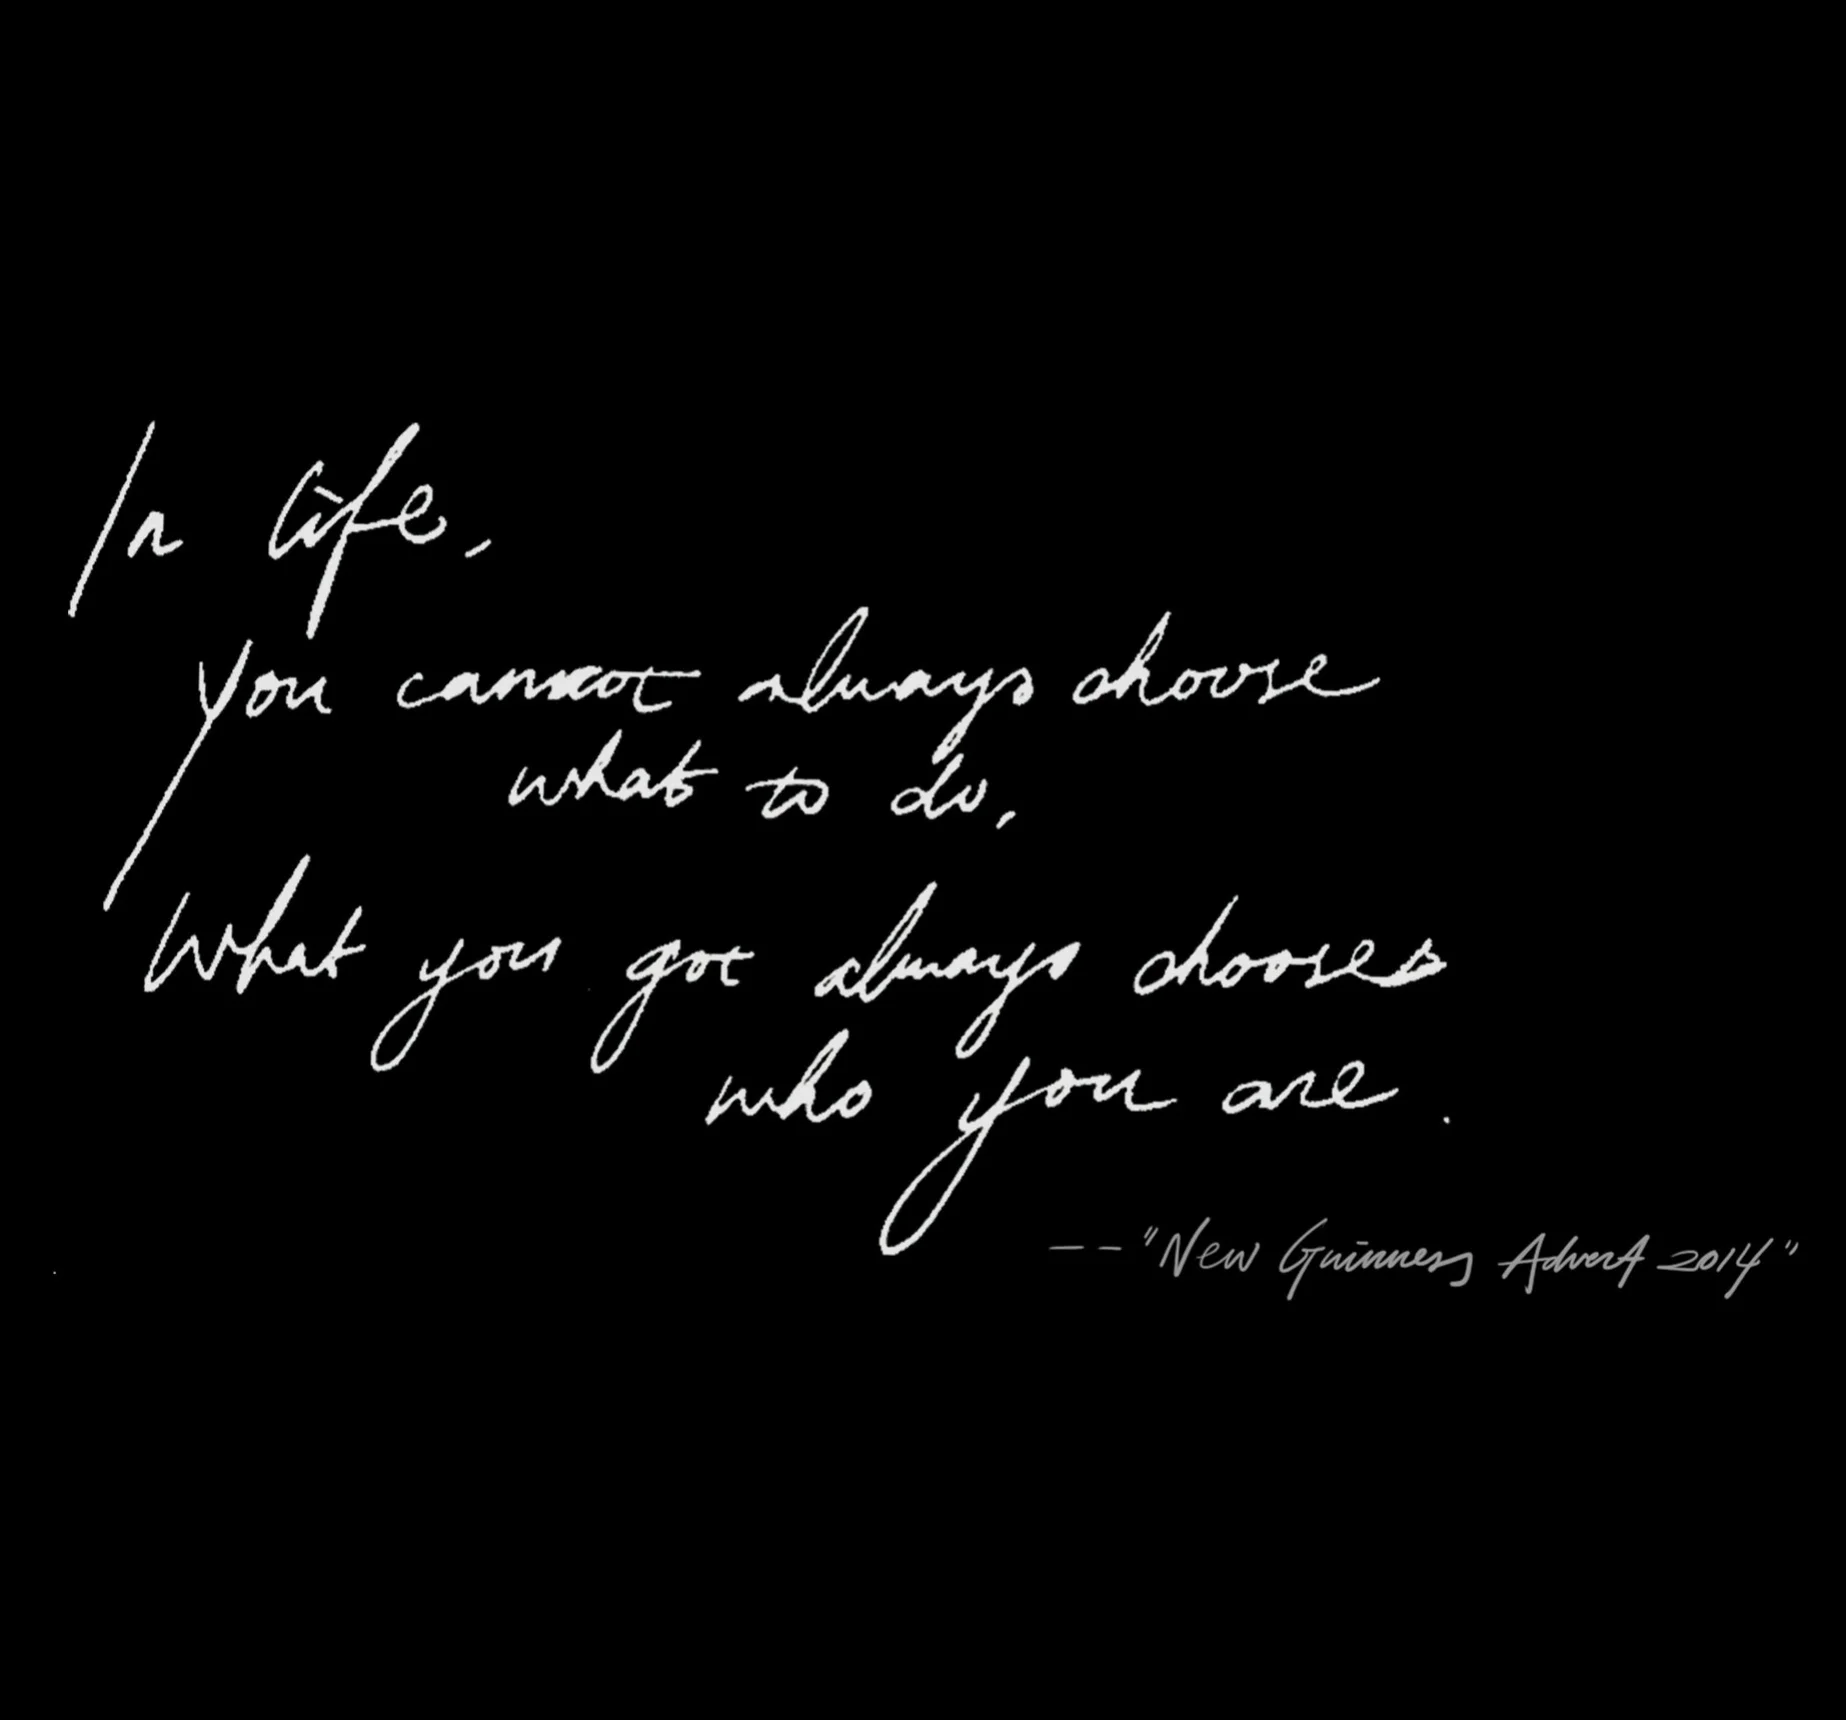 In life,
you cannot always choose
what to do,
What you got always chooses
who you are.
--"New Guinness Advert 2014"